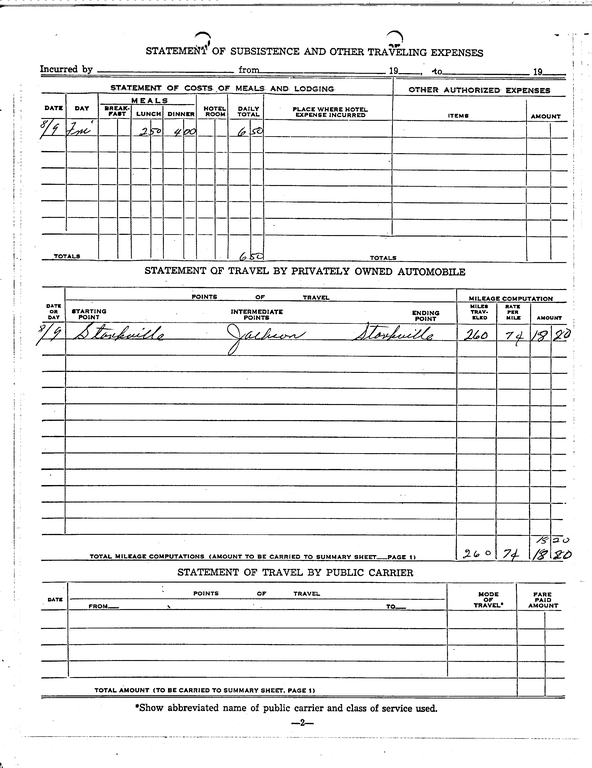 STATEMENT OF SUBSISTENCE AND OTHER TRAVELING EXPENSES
Incurred by from 19 , to 19
STATEMENT OF COSTS OF MEALS AND LODGING OTHER AUTHORIZED EXPENSES
DATE DAY MEALS BREAK-FAST LUNCH DINNER HOTEL ROOM DAILY TOTAL PLACE WHERE HOTEL EXPENSE INCURRED ITEMS AMOUNT
8/9 Fri 2 50 4 00 6 50
TOTALS 6 50 TOTALS
STATEMENT OF TRAVEL BY PRIVATELY OWNED AUTOMOBILE
POINTS OF TRAVEL MILEAGE COMPUTATION
DATE OR DAY STARTING POINT INTERMEDIATE POINTS ENDING POINT MILES TRAV-ELED RATE PER MILE AMOUNT
8/9 Starkville Jackson Starkville 260 7¢ 18 20
18 20
TOTAL MILEAGE COMPUTATIONS (AMOUNT TO BE CARRIED TO SUMMARY SHEET—PAGE 1) 260 7¢ 18 20
STATEMENT OF TRAVEL BY PUBLIC CARRIER
DATE POINTS OF TRAVEL MODE OF TRAVEL* FARE PAID AMOUNT
FROM— TO—
TOTAL AMOUNT (TO BE CARRIED TO SUMMARY SHEET, PAGE 1)
*Show abbreviated name of public carrier and class of service used.
—2—